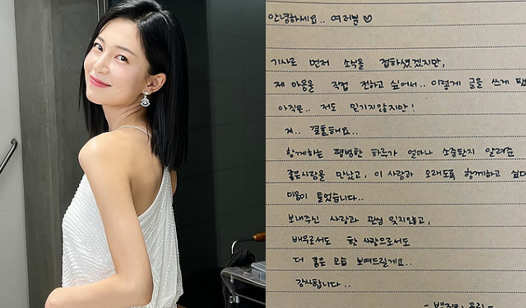 안녕하세요.. 여러분♡
기사로 먼저 소식을 접하셨겠지만,
제 마음을 직접 전하고 싶어서.. 이렇게 글을 쓰게 됐
아직은.. 저도 믿기지않지만!
저.. 결혼해요..
함께하는 평범한 하루가 얼마나 소중한지 알려준
좋은사람을 만났고, 이 사람과 오래도록 함께하고 싶다
마음이 들었습니다..
보내주신 사랑과 관심 잊지않고,
배우로서도 한 사람으로서도
더 좋은 모습 보여드릴게요..
감사합니다..